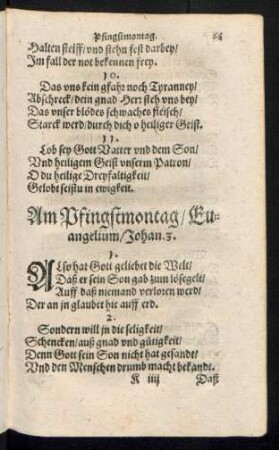 Pfingstmontag. 64
Halten steiff/ vnd stehn fest darbey/
Im fall der not bekennen frey.
10.
Das vns kein gfahr noch Tyranney/
Abschreck/ dein gnad Herr steh vns bey/
Das vnser blödes schwaches fleisch/
Starck werd/ durch dich o heiliger Geist.
11.
Lob sey Gott Vatter vnd dem Son/
Vnd heiligem Geist vnserm Patron/
O du heilige Dreyfaltigkeit/
Gelobt seistu in ewigkeit.
Am Pfingstmontag/ Eu-
angelium/ Johan. 3.
1.
Also hat Gott geliebet die Welt/
Daß er sein Son gab zum lösegelt/
Auff daß niemand verloren werd/
Der an jn glaubet hie auff erd.
2.
Sondern will jn die seligkeit/
Schencken/ auß gnad vnd gütigkeit/
Denn Gott sein Son nicht hat gesandt/
Vnd den Menschen drumb macht bekandt.
K iiij Daß